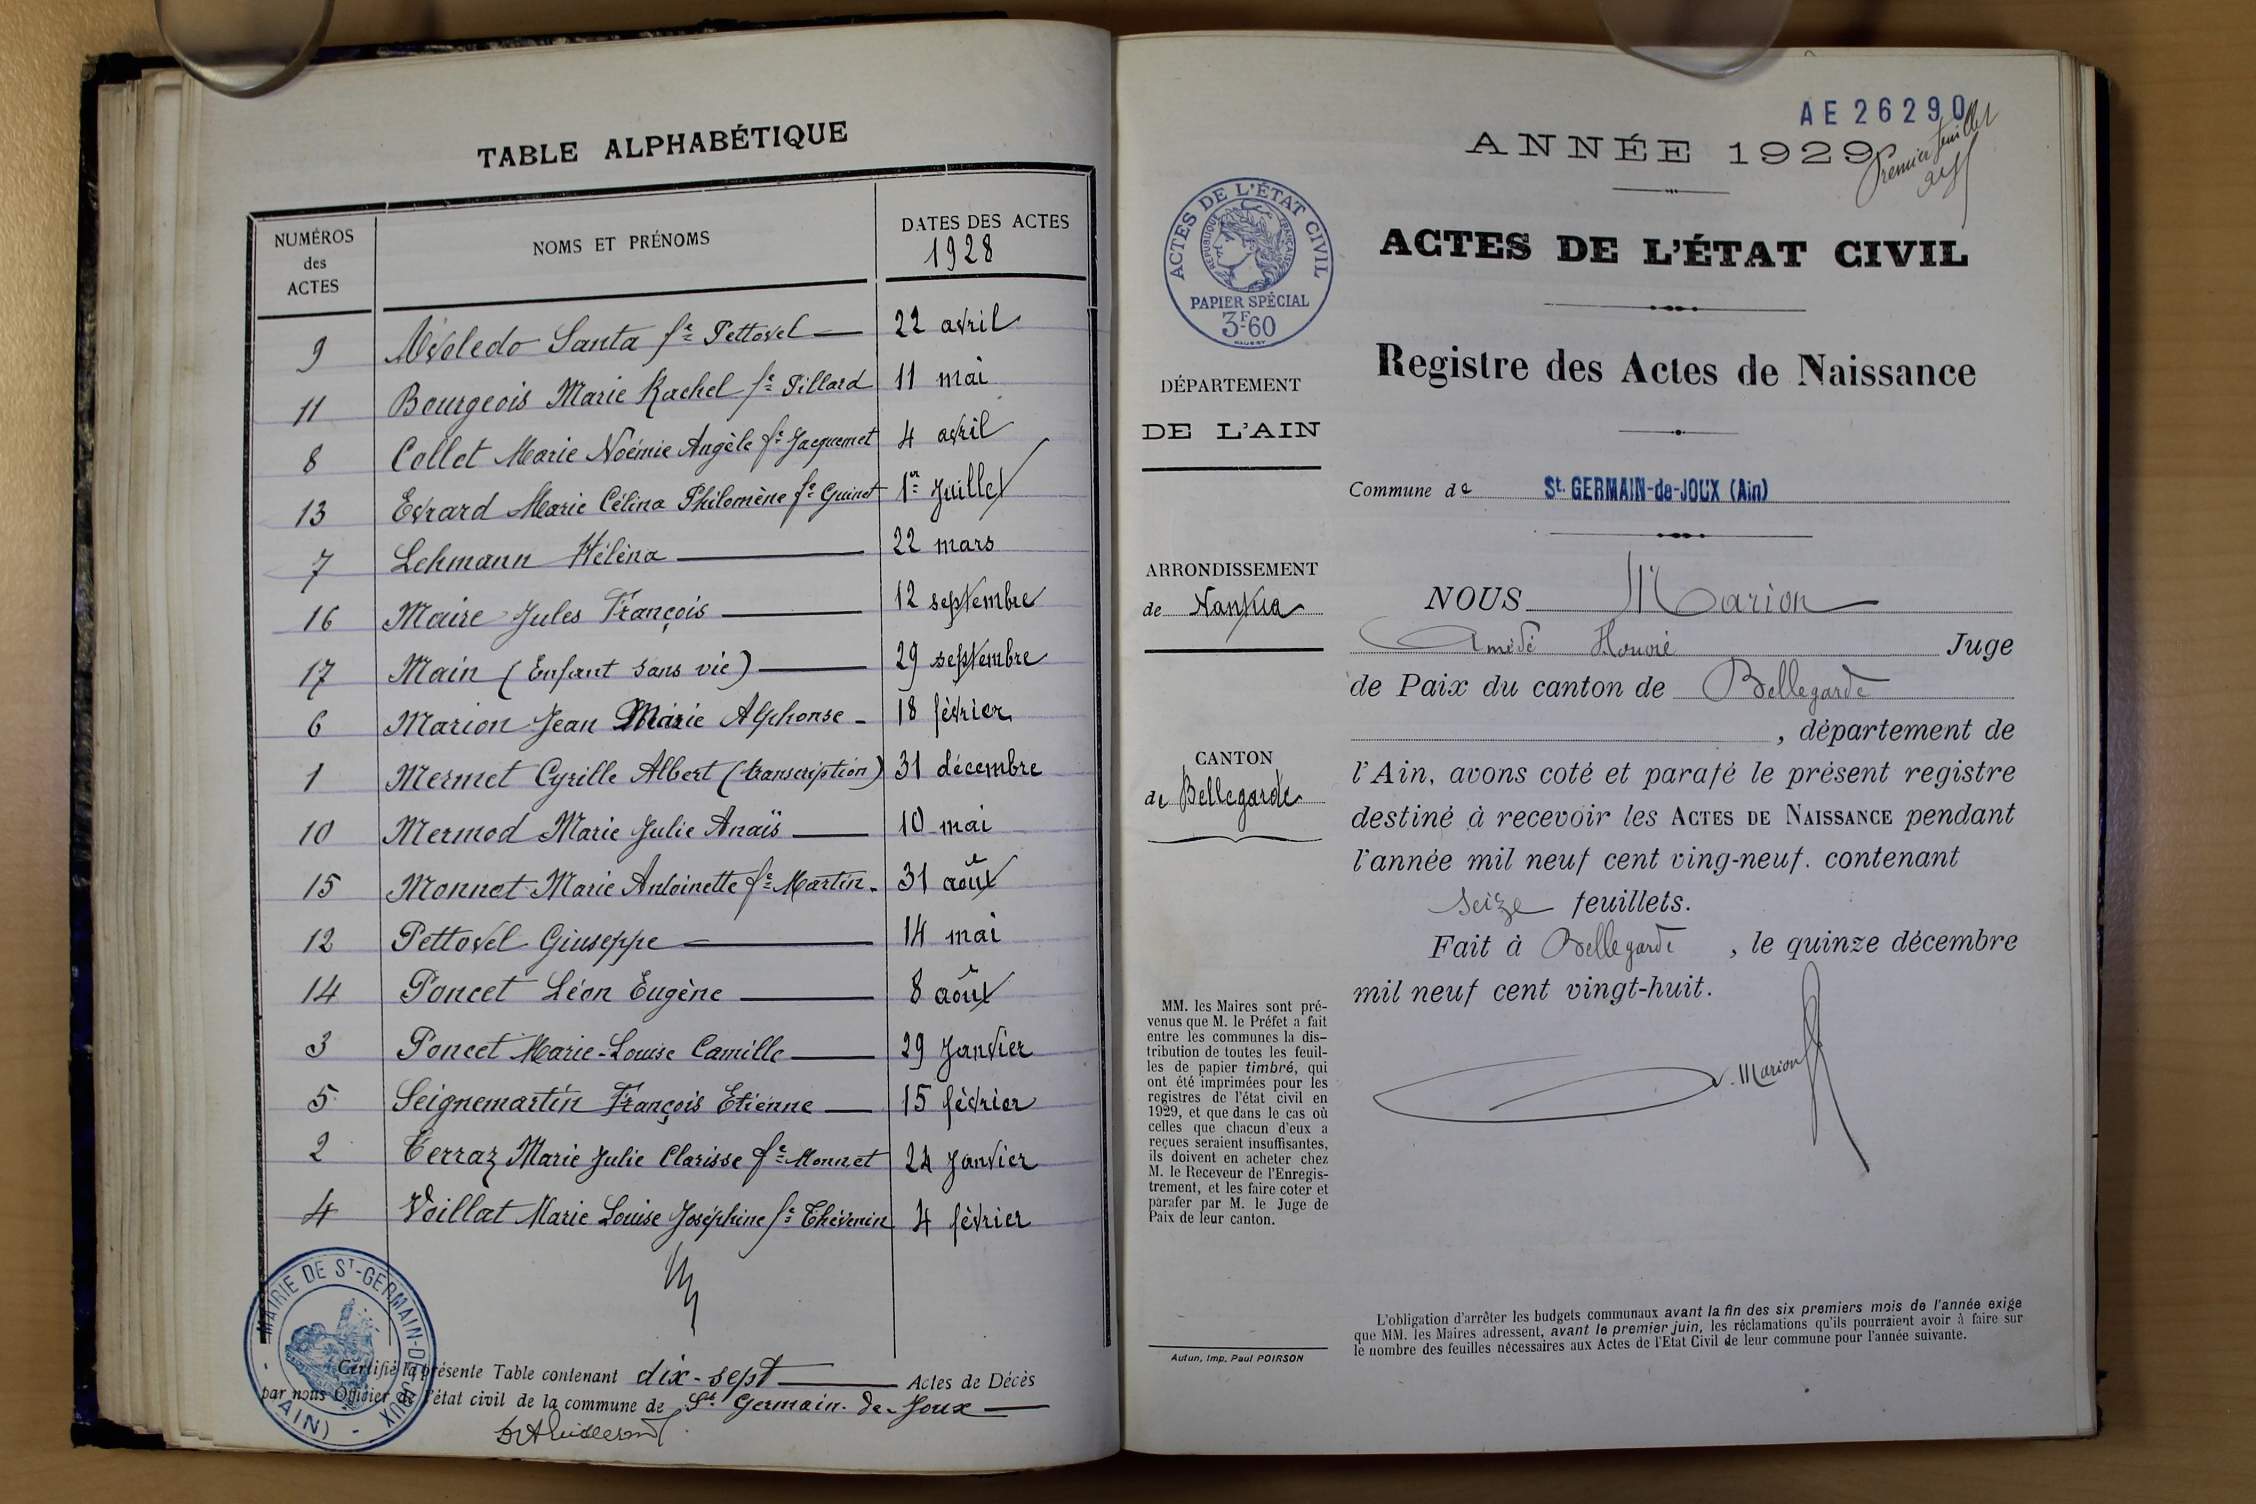 TABLE ALPHABÉTIQUE
NUMÉROS des ACTES
NOMS ET PRÉNOMS
DATES DES ACTES
1928
9 Avoledo Santa fe Pettovel 22 avril
11 Bourgeois Marie Rachel fe Pillard 11 mai
8 Collet Marie Noémie Angèle fe Jacquemet 4 avril
13 Evrard Marie Célina Philomène fe Guinet 1er Juillet
7 Lehmann Héléna 22 mars
16 Maire Jules François 12 septembre
17 Main (Enfant sans vie) 29 septembre
6 Marion Jean Marie Alphonse 18 février
1 Mermet Cyrille Albert (transcription) 31 décembre
10 Mermod Marie Julie Anaïs 10 mai
15 Monnet Marie Antoinette fe Martin 31 août
12 Pettovel Giuseppe 14 mai
14 Poncet Léon Eugène 8 août
3 Poncet Marie-Louise Camille 29 Janvier
5 Seignemartin François Etienne 15 février
2 Terraz Marie Julie Clarisse fe Monnet 24 Janvier
4 Voillat Marie Louise Joséphine fe Thévenin 4 février
MAIRIE DE ST-GERMAIN-DE-JOUX (AIN)
Certifié la présente Table contenant dix-sept Actes de Décès
par nous Officier de l'état civil de la commune de St Germain-de-Joux
AE 26290
Premier feuillet
ANNÉE 1929
ACTES DE L'ÉTAT CIVIL
RÉPUBLIQUE FRANÇAISE
PAPIER SPÉCIAL
3F60
ACTES DE L'ÉTAT CIVIL
Registre des Actes de Naissance
DÉPARTEMENT
DE L'AIN
Commune de St. GERMAIN-de-JOUX (Ain)
ARRONDISSEMENT
de Nantua
CANTON
de Bellegarde
NOUS Marion
Amédé Honoré Juge
de Paix du canton de Bellegarde
, département de
l'Ain, avons coté et parafé le présent registre
destiné à recevoir les ACTES DE NAISSANCE pendant
l'année mil neuf cent ving-neuf. contenant
seize feuillets.
Fait à Bellegarde, le quinze décembre
mil neuf cent vingt-huit.
Marion
MM. les Maires sont pré-
venus que M. le Préfet a fait
entre les communes la dis-
tribution de toutes les feuil-
les de papier timbré, qui
ont été imprimées pour les
registres de l'état civil en
1929, et que dans le cas où
celles que chacun d'eux a
reçues seraient insuffisantes,
ils doivent en acheter chez
M. le Receveur de l'Enregis-
trement, et les faire coter et
parafer par M. le Juge de
Paix de leur canton.
Autun, Imp. Paul POIRSON
L'obligation d'arrêter les budgets communaux avant la fin des six premiers mois de l'année exige
que MM. les Maires adressent, avant le premier juin, les réclamations qu'ils pourraient avoir à faire sur
le nombre des feuilles nécessaires aux Actes de l'Etat Civil de leur commune pour l'année suivante.